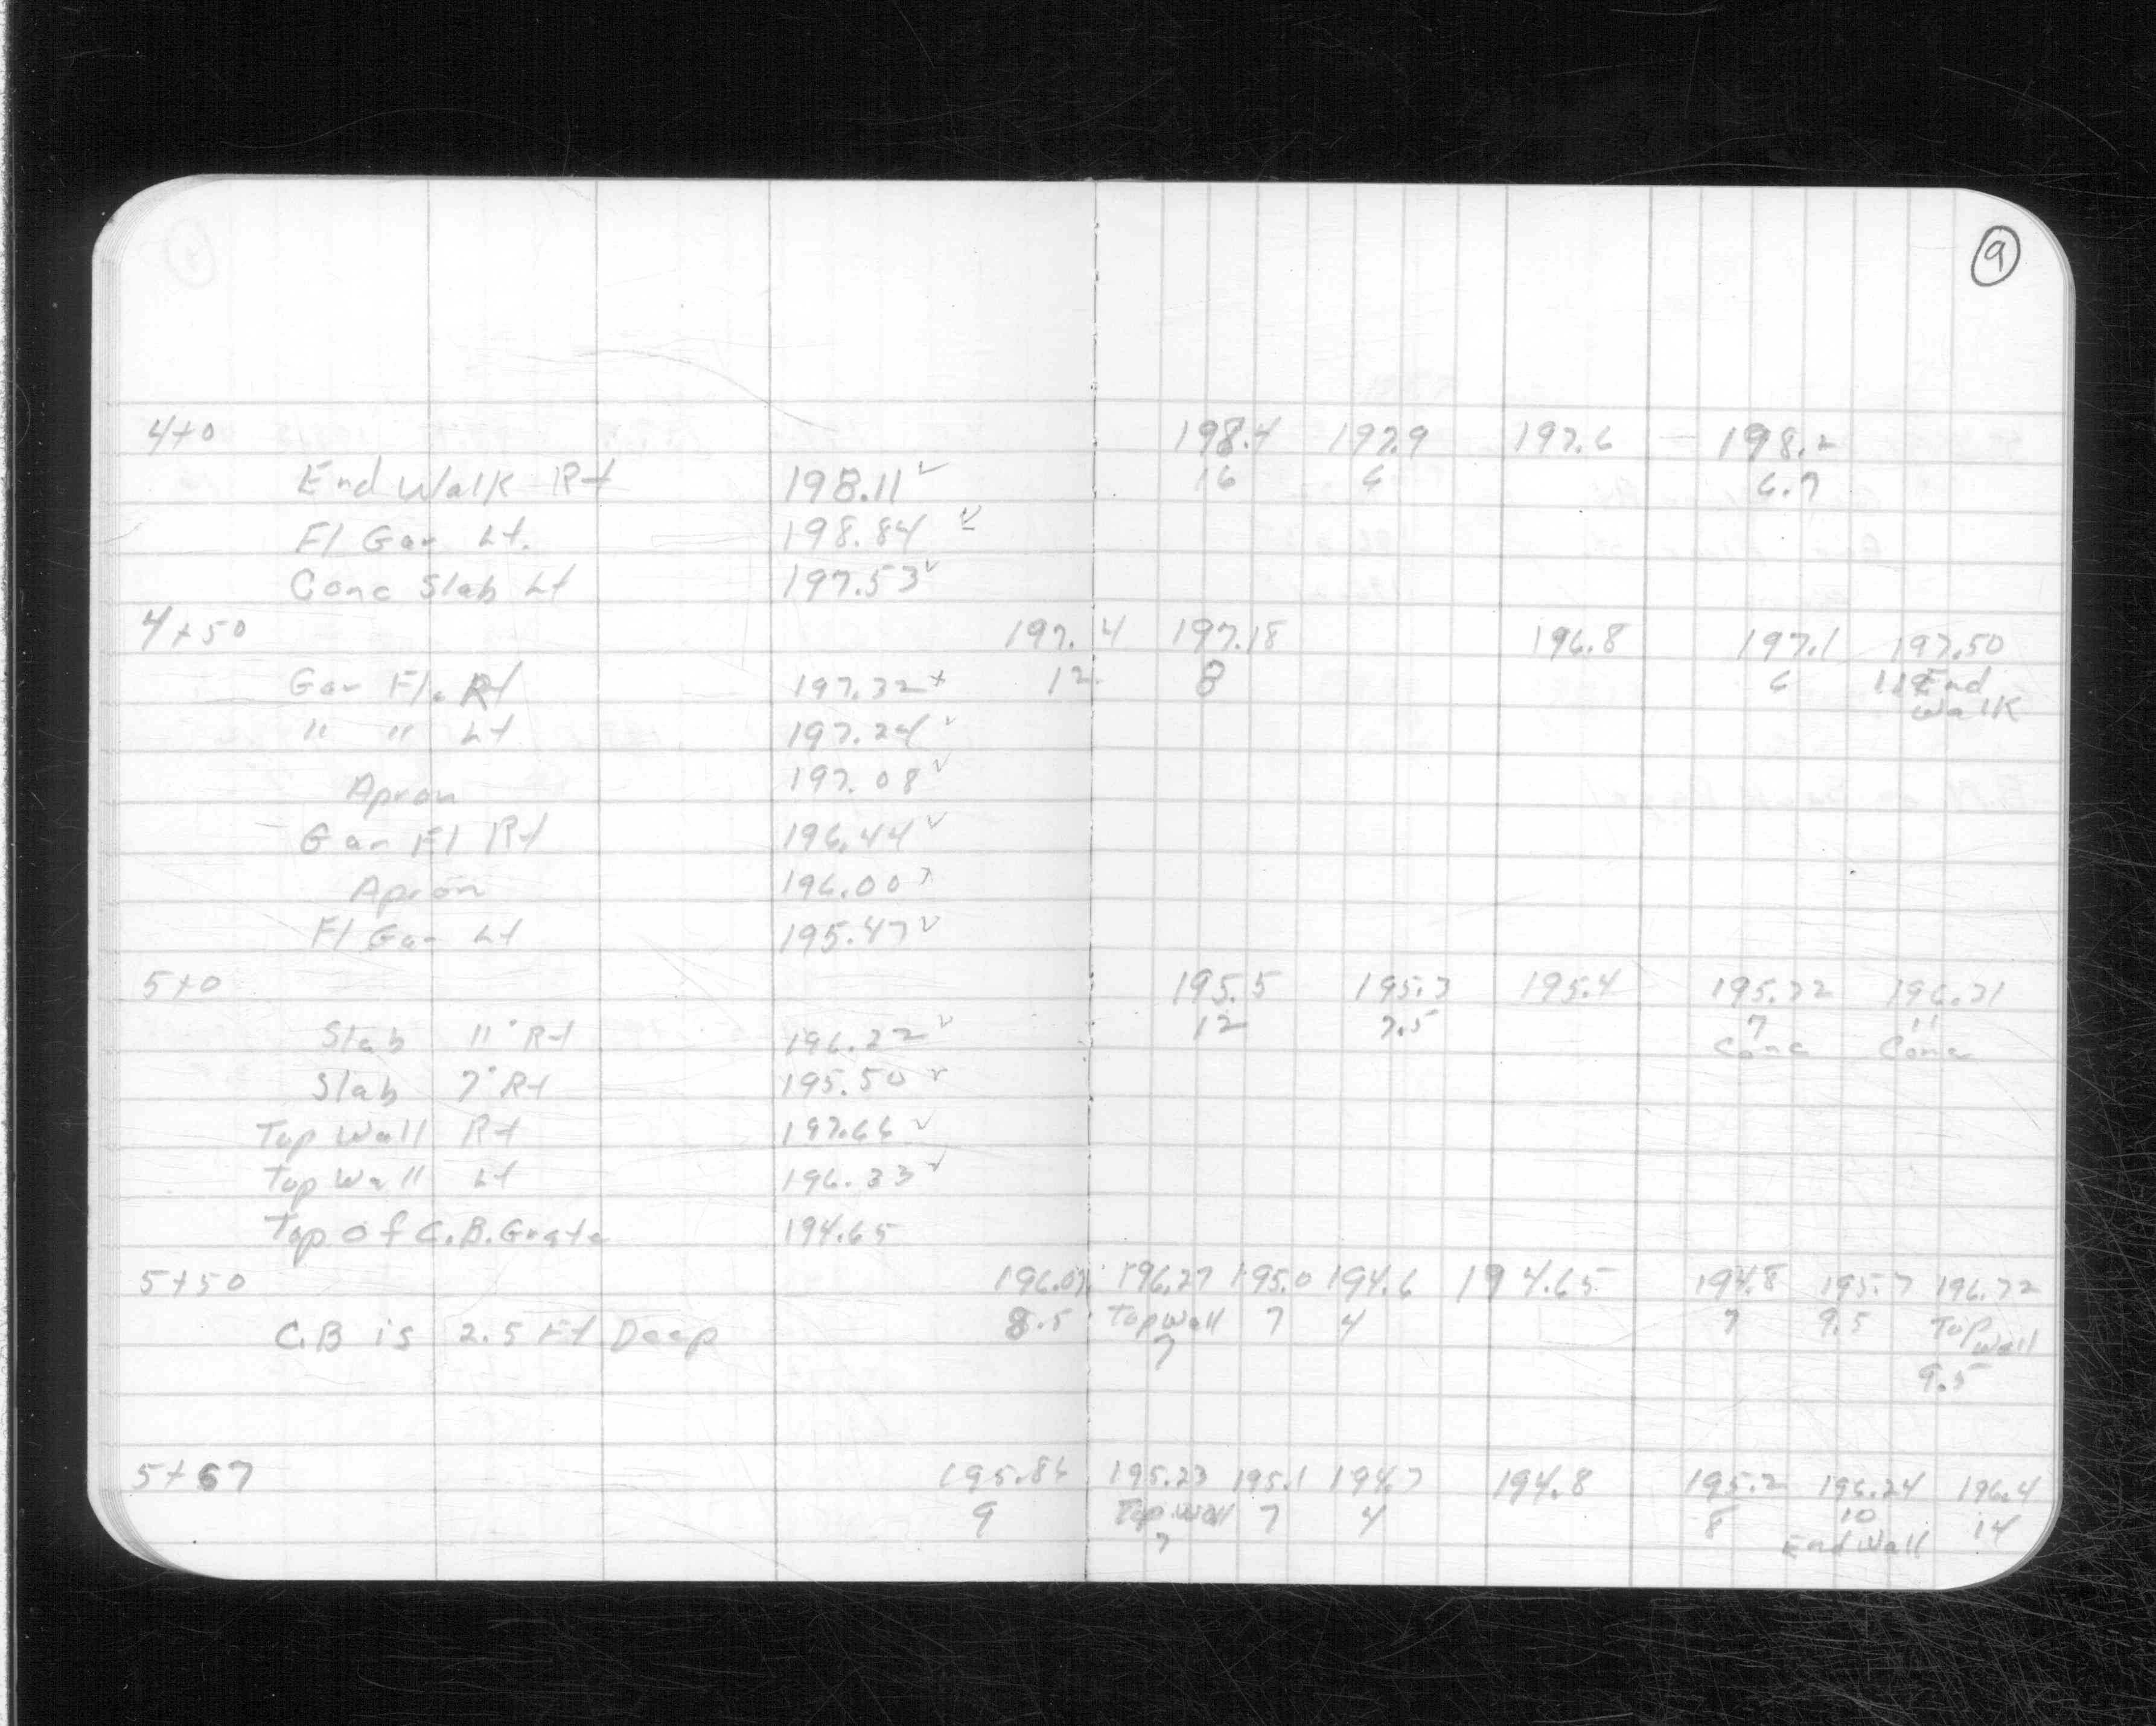 9
4+0 198.4 197.9 197.6 198.2
End Walk Rt 198.11 ✓ 16 6 6.7
Fl Gar Lt. 198.84 ✓
Conc Slab Lt 197.53 ✓
4+50 197.4 197.18 196.8 197.1 197.50
Gar Fl. Rt 197.32 + 12 8 6 End
" " Lt 197.24 ✓ Walk
Apron 197.08 ✓
Gar Fl Rt 196.44 ✓
Apron 196.00
Fl Gar Lt 195.47 ✓
5+0 195.5 195.3 195.4 195.32 196.31
Slab 11' Rt 196.22 ✓ 12 7.5 7 11
Conc Conc
Slab 7' Rt 195.50 ✓
Top Wall Rt 197.66 ✓
Top Wall Lt 196.33 ✓
Top of C.B. Grate 194.65
5+50 196.27 195.0 194.6 194.65 194.8 195.7 196.72
C.B is 2.5 Ft Deep 8.5 Top Wall 7 4 7 9.5 Top
7 Wall
9.5
5+67 195.86 195.23 195.1 194.7 194.8 195.2 196.24 196.4
9 Top Wall 7 4 8 10 14
7 End Wall